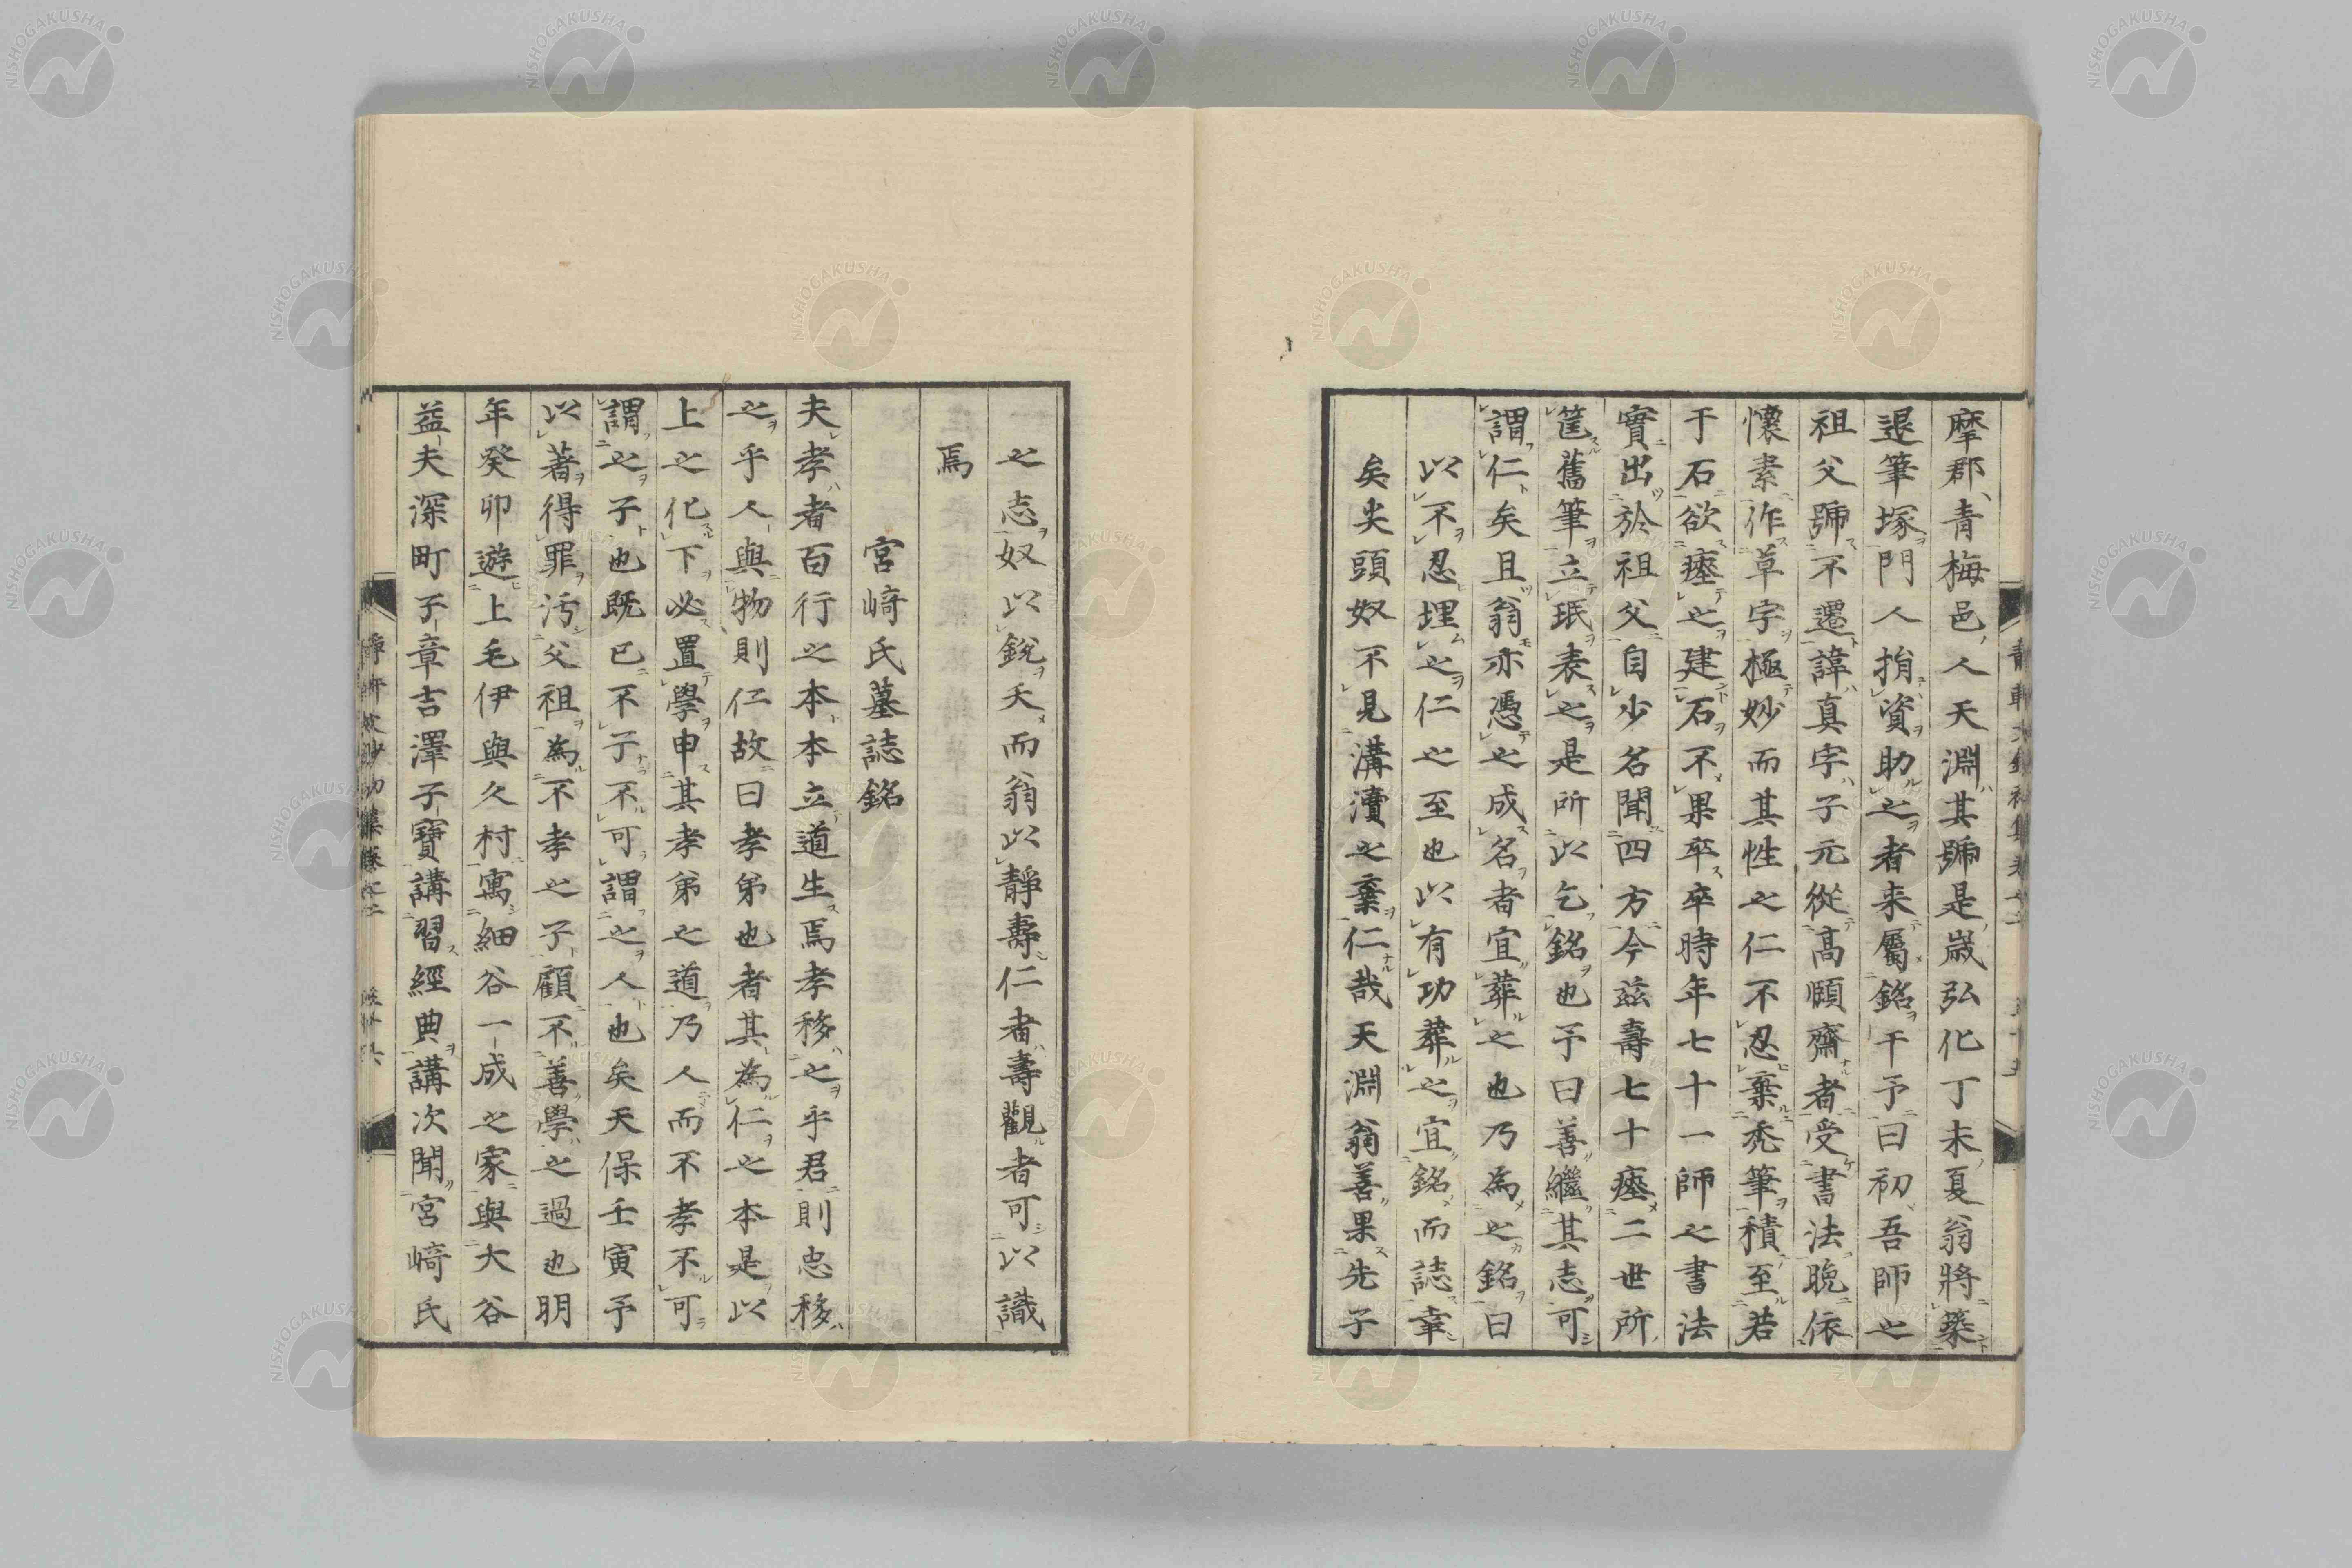 摩郡青梅邑人天淵其號是歳弘化丁未夏翁將築
退筆塚門人捐資助之者来屬銘于予曰初吾師之
祖父號不遷諱真字子元從高頤齋者受書法晩依
懷素作草字極妙而其性之仁不忍棄禿筆積至若
干石欲瘞之建石不果卒卒時年七十一師之書法
實出於祖父自少名聞四方今茲壽七十瘞二世所
筐舊筆立珉表之是所以乞銘也予曰善繼其志可
謂仁矣且翁亦憑之成名者宜葬之也乃為之銘曰
以不忍埋之仁之至也以有功葬之宜銘而誌幸
矣尖頭奴不見溝瀆之棄仁哉天淵翁善果先子
之志奴以銳夭而翁以靜壽仁者壽觀者可以識
焉
宮﨑氏墓誌銘
夫孝者百行之本本立道生焉孝移之乎君則忠移
之乎人與物則仁故曰孝弟也者其為仁之本是以
上之化下必置學申其孝弟之道乃人而不孝不可
謂之子也既已不子不可謂之人也矣天保壬寅予
以著得罪汚父祖為不孝之子顧不善學之過也明
年癸卯遊上毛伊與久村寓細谷一成之家與大谷
益夫深町子章吉澤子寶講習經典講次聞宮﨑氏
NISHOGAKUSHA